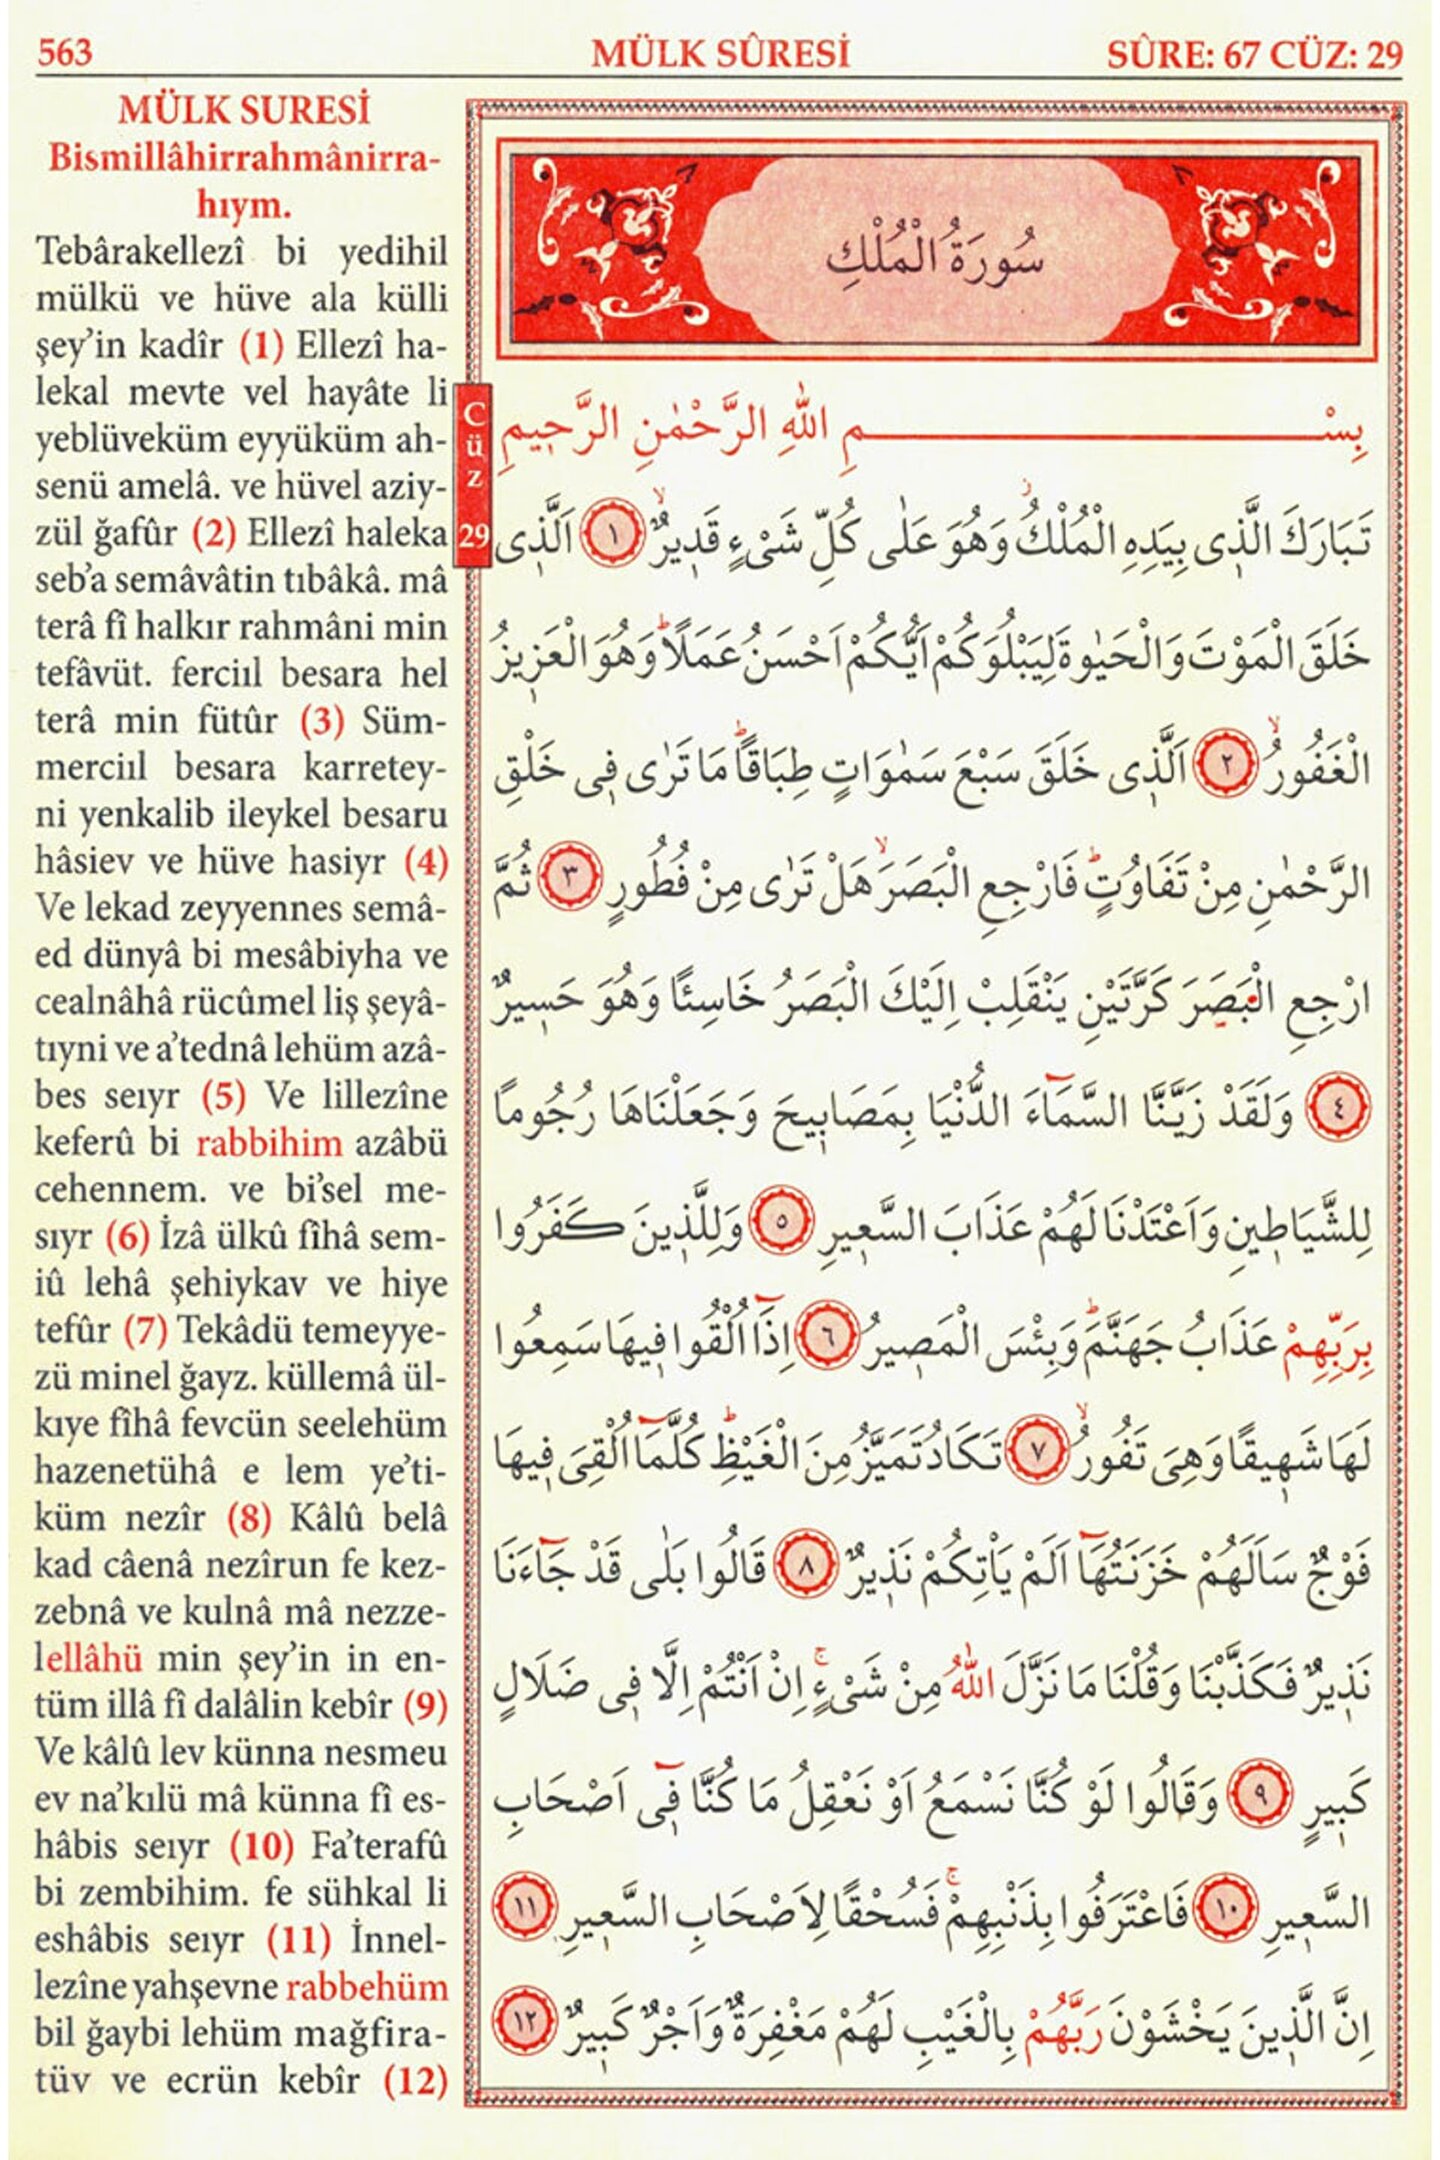 563 MÜLK SÛRESİ SÛRE: 67 CÜZ: 29
MÜLK SURESİ
Bismillâhirrahmânirra-
hıym.
Tebârakellezî bi yedihil
mülkü ve hüve ala külli
şey’in kadîr (1) Ellezî ha-
lekal mevte vel hayâte li
yeblüveküm eyyüküm ah-
senü amelâ. ve hüvel aziy-
zül ğafûr (2) Ellezî haleka
seb’a semâvâtin tıbâkâ. mâ
terâ fî halkır rahmâni min
tefâvüt. ferciıl besara hel
terâ min fütûr (3) Süm-
merciıl besara karretey-
ni yenkalib ileykel besaru
hâsiev ve hüve hasiyr (4)
Ve lekad zeyyennes semâ-
ed dünyâ bi mesâbiyha ve
cealnâhâ rücûmel liş şeyâ-
tıyni ve a’tednâ lehüm azâ-
bes seıyr (5) Ve lillezîne
keferû bi rabbihim azâbü
cehennem. ve bi’sel me-
sıyr (6) İzâ ülkû fîhâ sem-
iû lehâ şehiykav ve hiye
tefûr (7) Tekâdü temeyye-
zü minel ğayz. küllemâ ül-
kıye fîhâ fevcün seelehüm
hazenetühâ e lem ye’ti-
küm nezîr (8) Kâlû belâ
kad câenâ nezîrun fe kez-
zebnâ ve kulnâ mâ nezze-
lellâhü min şey’in in en-
tüm illâ fî dalâlin kebîr (9)
Ve kâlû lev künna nesmeu
ev na’kılü mâ künna fî es-
hâbis seıyr (10) Fa’terafû
bi zembihim. fe sühkal li
eshâbis seıyr (11) İnnel-
lezîne yahşevne rabbehüm
bil ğaybi lehüm mağfira-
tüv ve ecrün kebîr (12)
Cüz 29
سُورَةُ الْمُلْكِ
بِسْمِ اللّٰهِ الرَّحْمٰنِ الرَّحٖيمِ
تَبَارَكَ الَّذٖى بِيَدِهِ الْمُلْكُؗ وَهُوَ عَلٰى كُلِّ شَىْءٍ قَدٖيرٌۙ ١ اَلَّذٖى
خَلَقَ الْمَوْتَ وَالْحَيٰوةَ لِيَبْلُوَكُمْ اَيُّكُمْ اَحْسَنُ عَمَلًاؕ وَهُوَ الْعَزٖيزُ
الْغَفُورُۙ ٢ اَلَّذٖى خَلَقَ سَبْعَ سَمٰوَاتٍ طِبَاقًاؕ مَا تَرٰى فٖى خَلْقِ
الرَّحْمٰنِ مِنْ تَفَاوُتٍؕ فَارْجِعِ الْبَصَرَۙ هَلْ تَرٰى مِنْ فُطُورٍ ٣ ثُمَّ
ارْجِعِ الْبَصَرَ كَرَّتَيْنِ يَنْقَلِبْ اِلَيْكَ الْبَصَرُ خَاسِئًا وَهُوَ حَسٖيرٌ
٤ وَلَقَدْ زَيَّنَّا السَّمَٓاءَ الدُّنْيَا بِمَصَابٖيحَ وَجَعَلْنَاهَا رُجُومًا
لِلشَّيَاطٖينِ وَاَعْتَدْنَا لَهُمْ عَذَابَ السَّعٖيرِ ٥ وَلِلَّذٖينَ كَفَرُوا
بِرَبِّهِمْ عَذَابُ جَهَنَّمَؕ وَبِئْسَ الْمَصٖيرُ ٦ اِذَٓا اُلْقُوا فٖيهَا سَمِعُوا
لَهَا شَهٖيقًا وَهِىَ تَفُورُۙ ٧ تَكَادُ تَمَيَّزُ مِنَ الْغَيْظِؕ كُلَّمَٓا اُلْقِىَ فٖيهَا
فَوْجٌ سَاَلَهُمْ خَزَنَتُهَٓا اَلَمْ يَاْتِكُمْ نَذٖيرٌ ٨ قَالُوا بَلٰى قَدْ جَٓاءَنَا
نَذٖيرٌ فَكَذَّبْنَا وَقُلْنَا مَا نَزَّلَ اللّٰهُ مِنْ شَىْءٍۚ اِنْ اَنْتُمْ اِلَّا فٖى ضَلَالٍ
كَبٖيرٍ ٩ وَقَالُوا لَوْ كُنَّا نَسْمَعُ اَوْ نَعْقِلُ مَا كُنَّا فٖٓى اَصْحَابِ
السَّعٖيرِ ١٠ فَاعْتَرَفُوا بِذَنْبِهِمْۚ فَسُحْقًا لِاَصْحَابِ السَّعٖيرِ ١١
اِنَّ الَّذٖينَ يَخْشَوْنَ رَبَّهُمْ بِالْغَيْبِ لَهُمْ مَغْفِرَةٌ وَاَجْرٌ كَبٖيرٌ ١٢